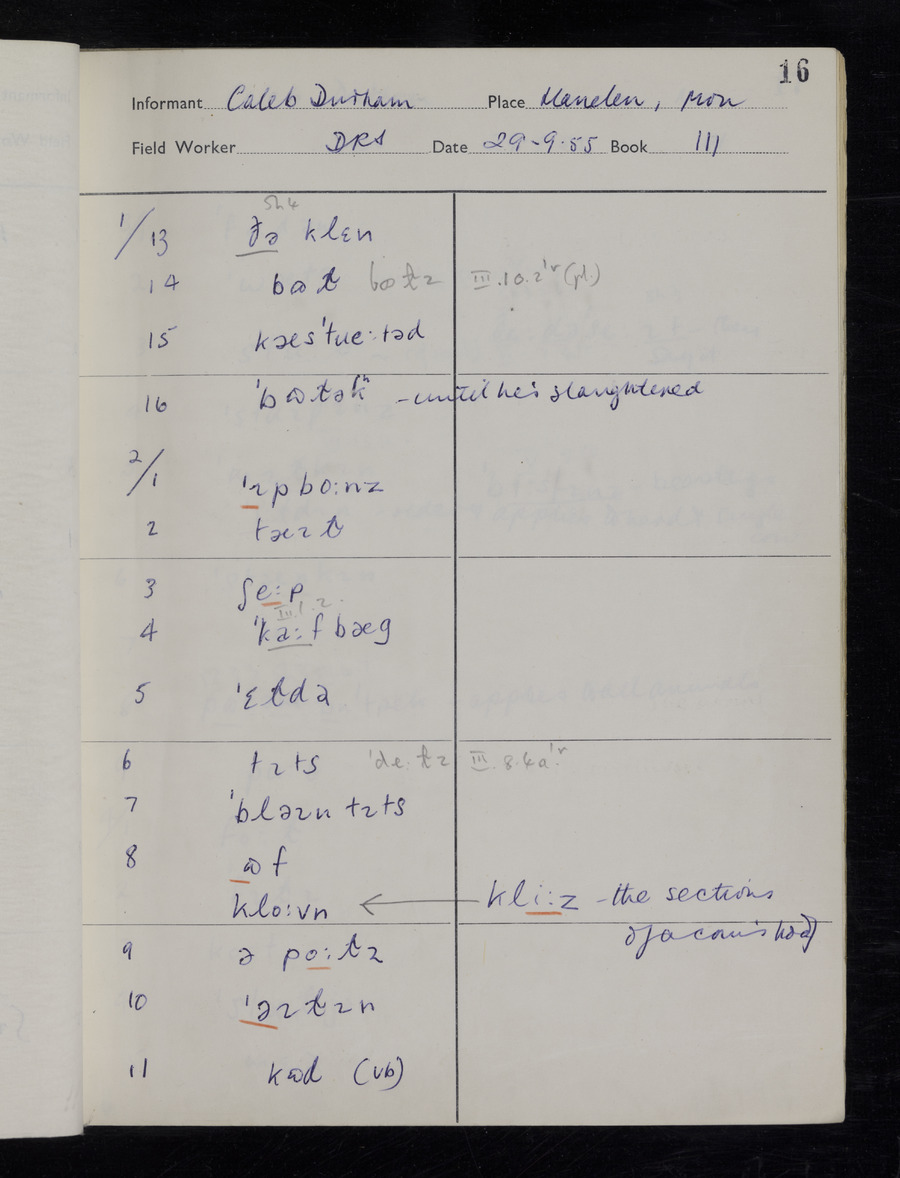 16
Informant Caleb Durham Place Llanelen, Mon
Field Worker DRS Date 29-9-55 Book III
5h4
1/13 ðə klɛn
14 bɷɫ bɷɫz III.10.2 (pl.)
15 kəs'tɹeːtəd
16 'bɷɫəkʰ - until he's slaughtered
2/1 'ɪpboːnz
2 tæɪɫ
3 ʃeːp
III.1.2.
4 'kaːfbæg
5 'ɛɫdə
6 tɪts
7 'bləɪn tɪts
8 ɷf
kloːvn ← kliːz - the sections
of a cow's hoof
9 ə poːɫɪ
10 'əɪɫɪn
11 kɷd (vb)